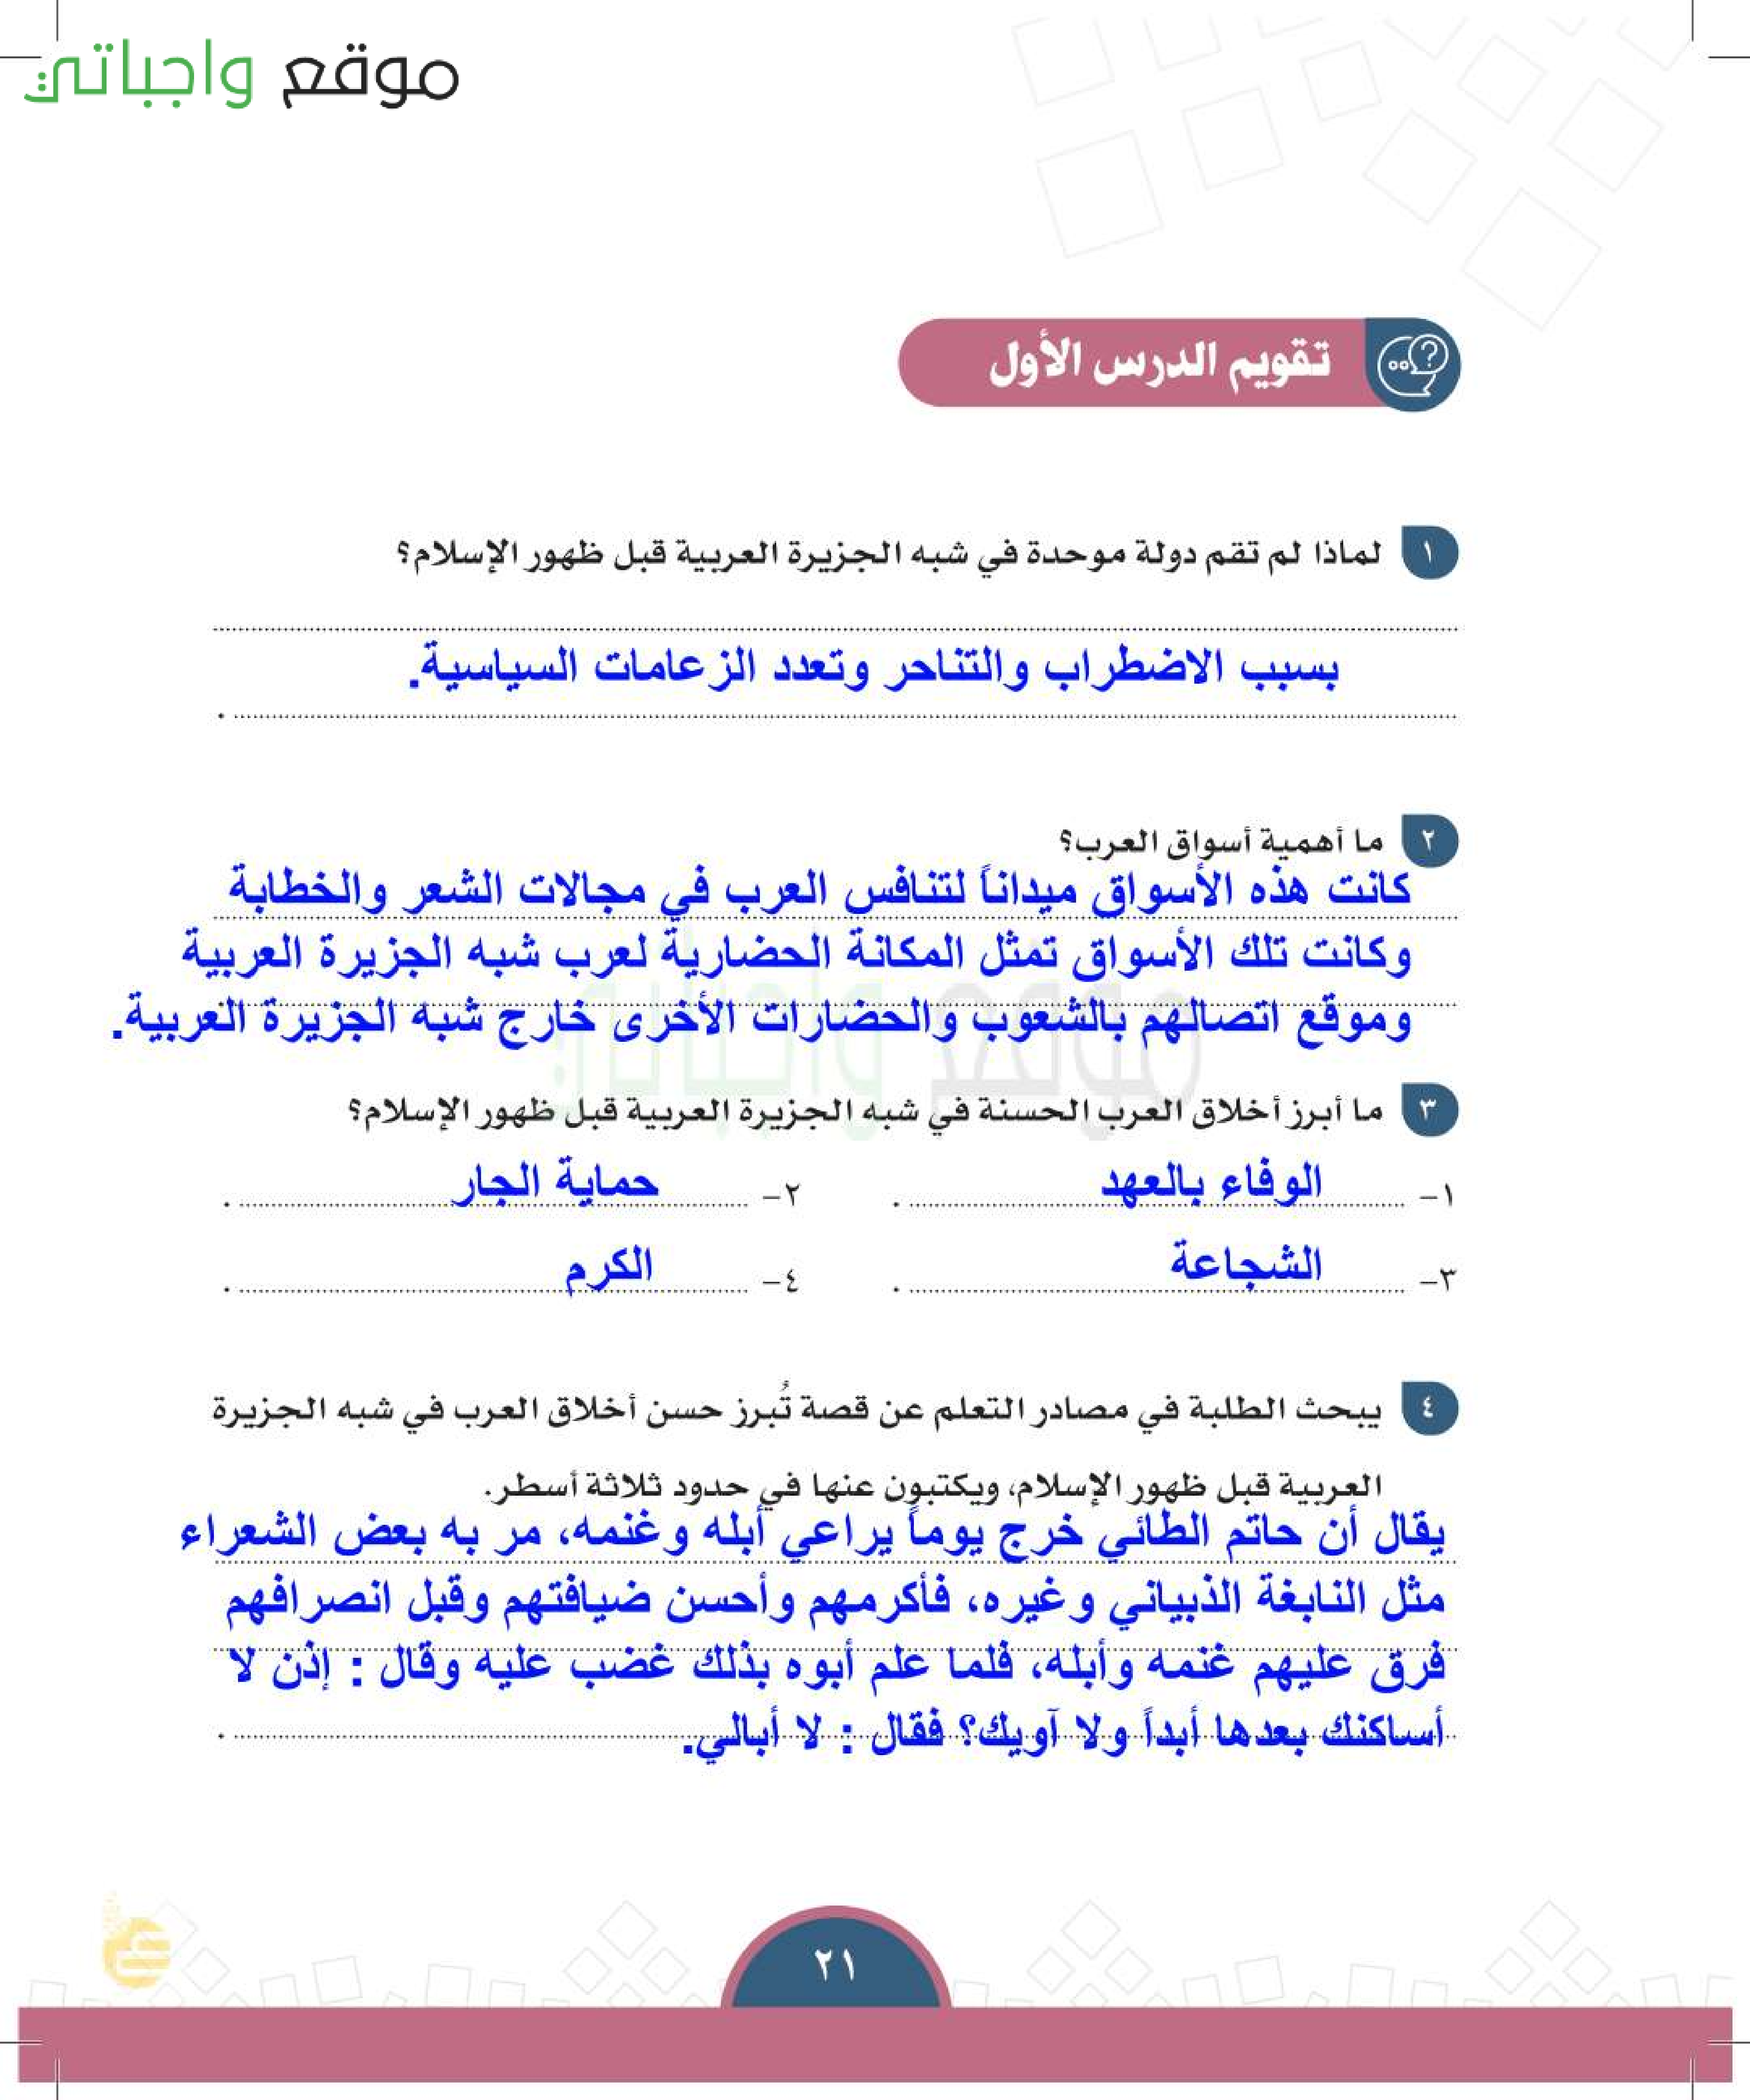 موقع واجباتي
تقويم الدرس الأول
١ لماذا لم تقم دولة موحدة في شبه الجزيرة العربية قبل ظهور الإسلام؟
بسبب الاضطراب والتناحر وتعدد الزعامات السياسية.
٢ ما أهمية أسواق العرب؟
كانت هذه الأسواق ميداناً لتنافس العرب في مجالات الشعر والخطابة
وكانت تلك الأسواق تمثل المكانة الحضارية لعرب شبه الجزيرة العربية
وموقع اتصالهم بالشعوب والحضارات الأخرى خارج شبه الجزيرة العربية.
موقع واجباتي
٣ ما أبرز أخلاق العرب الحسنة في شبه الجزيرة العربية قبل ظهور الإسلام؟
١- الوفاء بالعهد . ٢- حماية الجار .
٣- الشجاعة . ٤- الكرم .
٤ يبحث الطلبة في مصادر التعلم عن قصة تُبرز حسن أخلاق العرب في شبه الجزيرة
العربية قبل ظهور الإسلام، ويكتبون عنها في حدود ثلاثة أسطر.
يقال أن حاتم الطائي خرج يوماً يراعي أبله وغنمه، مر به بعض الشعراء
مثل النابغة الذبياني وغيره، فأكرمهم وأحسن ضيافتهم وقبل انصرافهم
فرق عليهم غنمه وأبله، فلما علم أبوه بذلك غضب عليه وقال : إذن لا
أساكنك بعدها أبداً ولا آويك؟ فقال : لا أبالي.
٢١